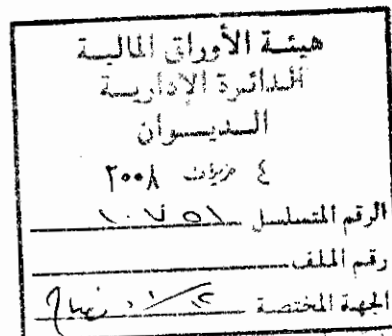 هيئة الأوراق المالية
الدائرة الإدارية
الديوان
٤ حزيران ٢٠٠٨
الرقم المتسلسل
رقم الملف
الجهة المختصة